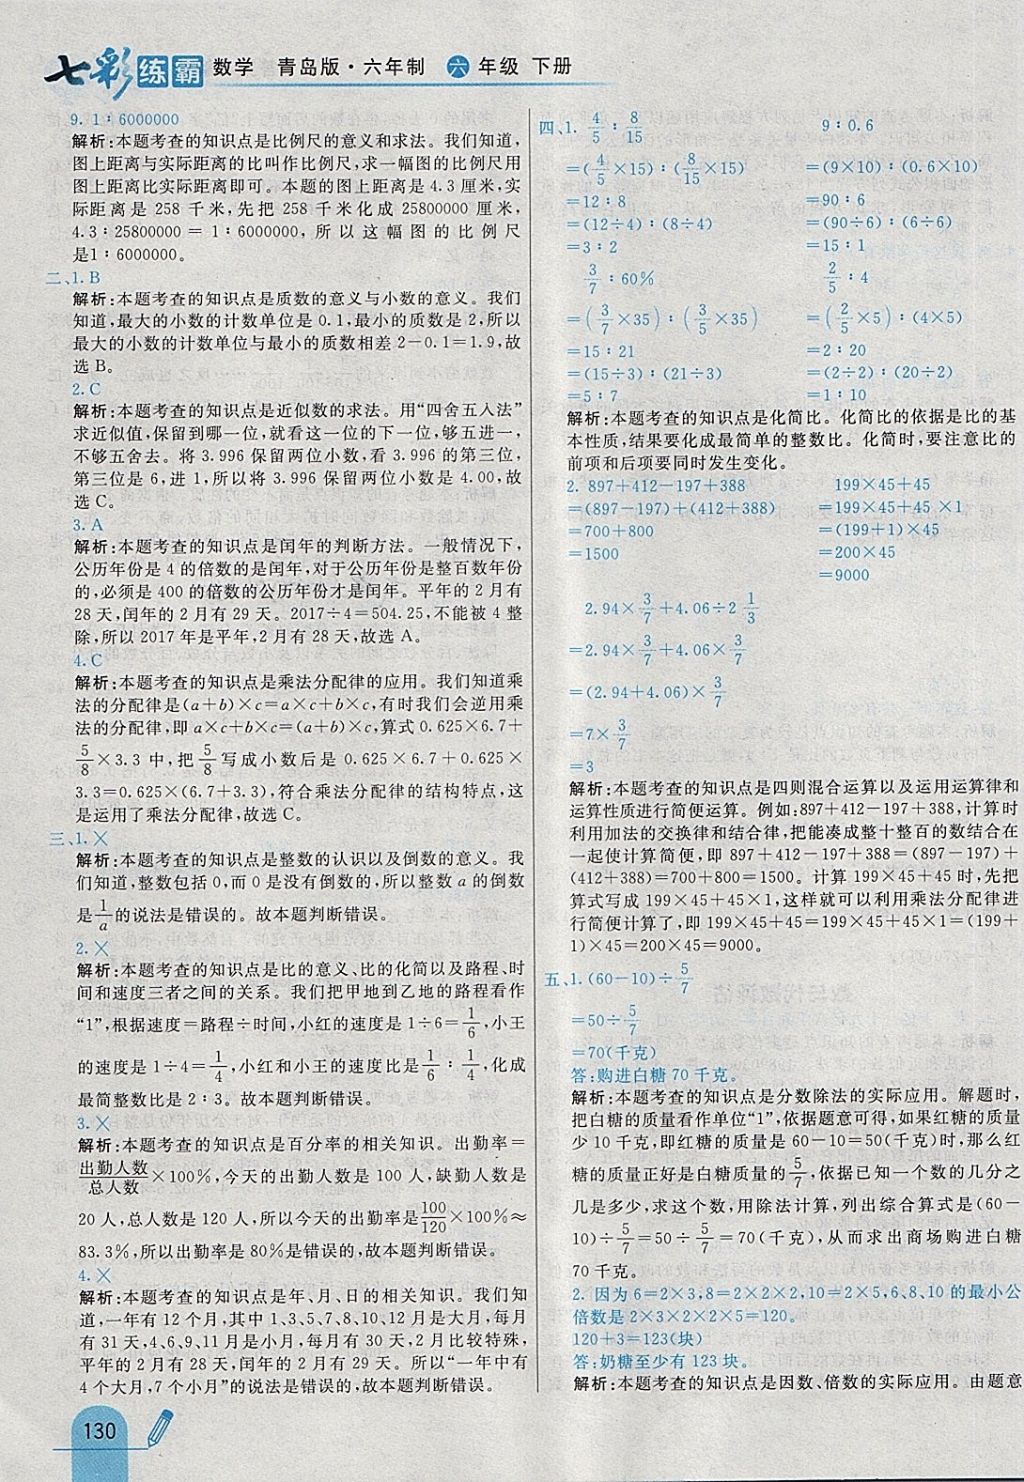 七彩练霸 数学 青岛版·六年制 六 年级 下册
9. 1∶6000000
解析:本题考查的知识点是比例尺的意义和求法。我们知道,
图上距离与实际距离的比叫作比例尺,求一幅图的比例尺用
图上距离比实际距离即可。本题的图上距离是 4.3 厘米,实
际距离是 258 千米,先把 258 千米化成 25800000 厘米,
4.3∶25800000 = 1∶6000000,所以这幅图的比例尺
是1∶6000000。
二、1. B
解析:本题考查的知识点是质数的意义与小数的意义。我们
知道,最大的小数的计数单位是 0.1,最小的质数是 2,所以
最大的小数的计数单位与最小的质数相差 2-0.1=1.9,故
选 B。
2. C
解析:本题考查的知识点是近似数的求法。用“四舍五入法”
求近似值,保留到哪一位,就看这一位的下一位,够五进一,
不够五舍去。将 3.996 保留两位小数,看 3.996 的第三位,
第三位是 6,进 1,所以将 3.996 保留两位小数是 4.00,故
选 C。
3. A
解析:本题考查的知识点是闰年的判断方法。一般情况下,
公历年份是 4 的倍数的是闰年,对于公历年份是整百数年份
的,必须是 400 的倍数的公历年份才是闰年。平年的 2 月有
28 天,闰年的 2 月有 29 天。2017÷4=504.25,不能被 4 整
除,所以 2017 年是平年,2 月有 28 天,故选 A。
4. C
解析:本题考查的知识点是乘法分配律的应用。我们知道乘
法的分配律是(a+b)×c=a×c+b×c,有时我们会逆用乘
法的分配律,即 a×c+b×c=(a+b)×c,算式 0.625×6.7+
5/8×3.3 中,把 5/8 写成小数后是 0.625×6.7+0.625×
3.3=0.625×(6.7+3.3),符合乘法分配律的结构特点,这
是运用了乘法分配律,故选 C。
三、1. ×
解析:本题考查的知识点是整数的认识以及倒数的意义。我
们知道,整数包括 0,而 0 是没有倒数的,所以整数 a 的倒数
是 1/a 的说法是错误的。故本题判断错误。
2. ×
解析:本题考查的知识点是比的意义、比的化简以及路程、时
间和速度三者之间的关系。我们把甲地到乙地的路程看作
“1”,根据速度=路程÷时间,小红的速度是 1÷6=1/6,小王
的速度是 1÷4=1/4,小红和小王的速度比是 1/6∶1/4,化成
最简整数比是 2∶3。故本题判断错误。
3. ×
解析:本题考查的知识点是百分率的相关知识。出勤率=
出勤人数/总人数×100%,今天的出勤人数是 100 人,缺勤人数是
20 人,总人数是 120 人,所以今天的出勤率是 100/120×100%≈
83.3%,所以出勤率是 80%是错误的,故本题判断错误。
4. ×
解析:本题考查的知识点是年、月、日的相关知识。我们知
道,一年有 12 个月,其中 1、3、5、7、8、10、12 月是大月,每月
有 31 天,4、6、9、11 月是小月,每月有 30 天,2 月比较特殊,
平年的 2 月有 28 天,闰年的 2 月有 29 天。所以“一年中有
4 个大月,7 个小月”的说法是错误的,故本题判断错误。
130
四、1. 4/5∶8/15 9∶0.6
=(4/5×15)∶(8/15×15) =(9×10)∶(0.6×10)
=12∶8 =90∶6
=(12÷4)∶(8÷4) =(90÷6)∶(6÷6)
=3∶2 =15∶1
3/7∶60% 2/5∶4
=(3/7×35)∶(3/5×35) =(2/5×5)∶(4×5)
=15∶21 =2∶20
=(15÷3)∶(21÷3) =(2÷2)∶(20÷2)
=5∶7 =1∶10
解析:本题考查的知识点是化简比。化简比的依据是比的基
本性质,结果要化成最简单的整数比。化简时,要注意比的
前项和后项要同时发生变化。
2. 897+412-197+388 199×45+45
=(897-197)+(412+388) =199×45+45×1
=700+800 =(199+1)×45
=1500 =200×45
=9000
2.94×3/7+4.06÷2 1/3
=2.94×3/7+4.06×3/7
=(2.94+4.06)×3/7
=7×3/7
=3
解析:本题考查的知识点是四则混合运算以及运用运算律和
运算性质进行简便运算。例如:897+412-197+388,计算时
利用加法的交换律和结合律,把能凑成整十整百的数结合在
一起使计算简便,即 897+412-197+388=(897-197)+
(412+388)=700+800=1500。计算 199×45+45 时,先把
算式写成 199×45+45×1,这样就可以利用乘法分配律进
行简便计算了,即 199×45+45=199×45+45×1=(199+
1)×45=200×45=9000。
五、1. (60-10)÷5/7
=50÷5/7
=70(千克)
答:购进白糖 70 千克。
解析:本题考查的知识点是分数除法的实际应用。解题时,
把白糖的质量看作单位“1”,依据题意可得,如果红糖的质量
少 10 千克,即红糖的质量是 60-10=50(千克)时,那么红
糖的质量正好是白糖质量的 5/7,依据已知一个数的几分之
几是多少,求这个数,用除法计算,列出综合算式是(60-
10)÷5/7=50÷5/7=70(千克),从而求出商场购进白糖
70 千克。
2. 因为 6=2×3,8=2×2×2,10=2×5,6、8、10 的最小公
倍数是 2×3×2×2×5=120。
120+3=123(块)
答:奶糖至少有 123 块。
解析:本题考查的知识点是因数、倍数的实际应用。由题意